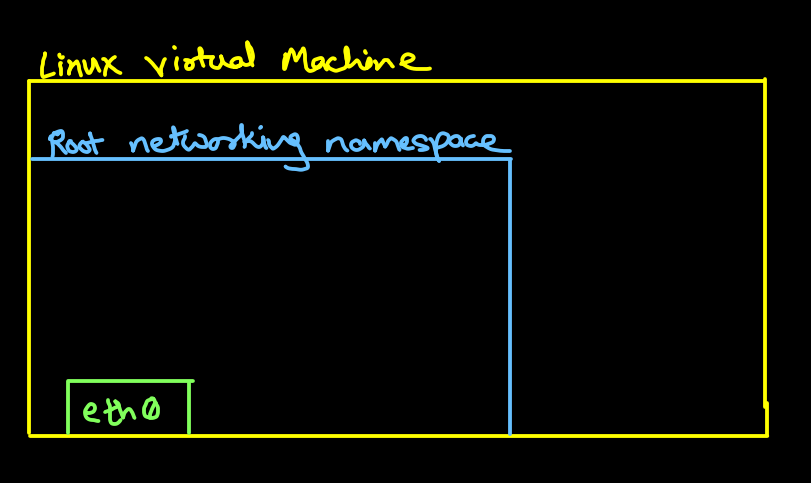 Linux virtual Machine
Root networking namespace
eth0